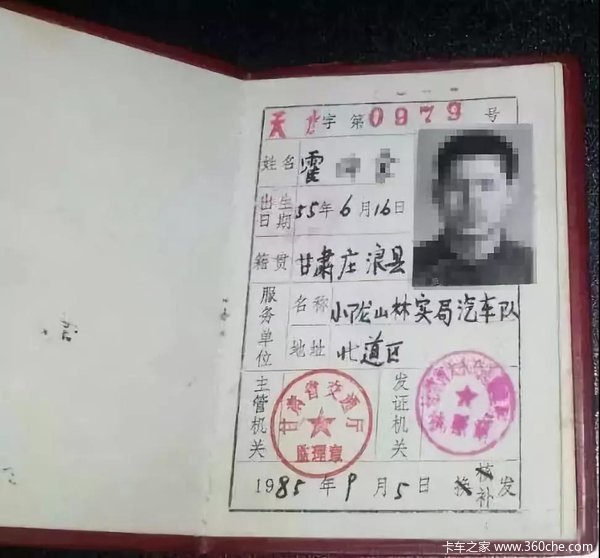 天北字第0979号
姓名 霍
出生日期 55年6月16日
籍贯 甘肃庄浪县
服务单位 名称 小陇山林实局汽车队
地址 北道区
主管机关 甘肃省交通厅 监理章
发证机关
1985年9月5日 换核补发
卡车之家 www.360che.com